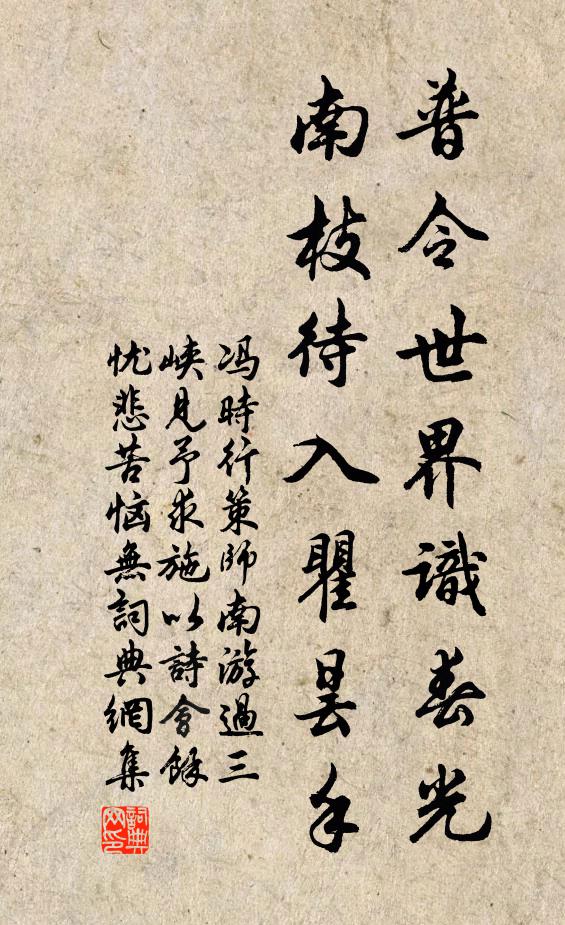 普令世界識春光
南枝待入瞿曇手
冯時行策師南游過三
峡見予求施以詩會餘
忧悲苦恼無詞典網集
詞典
网印